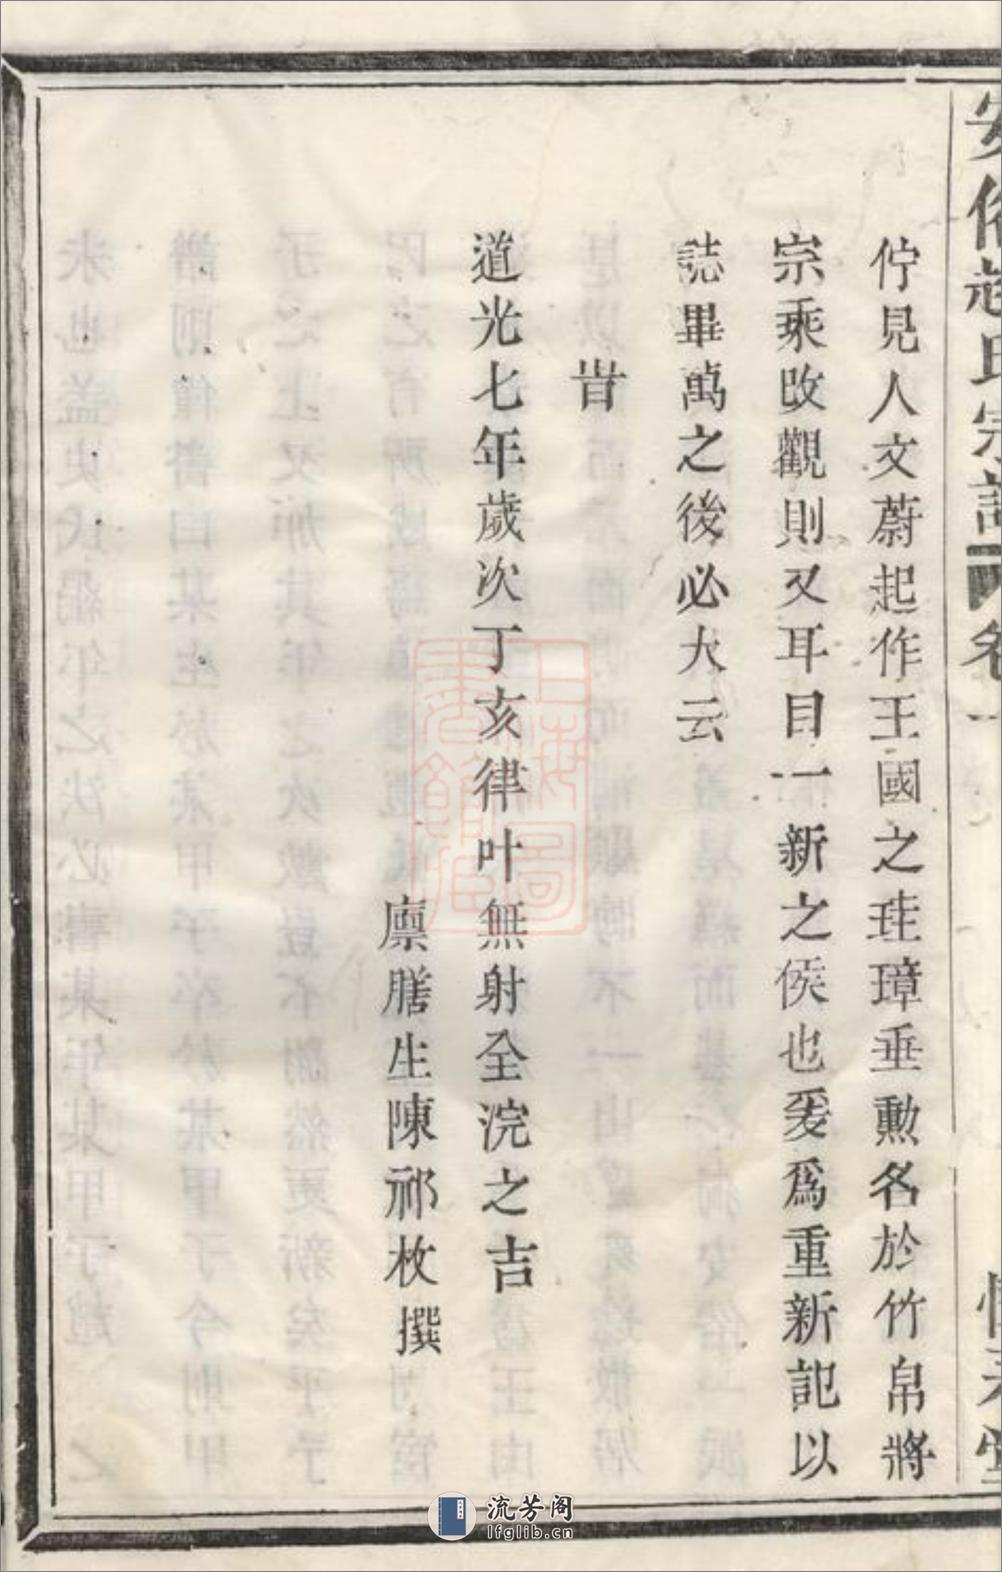 安俗趙氏宗譜 卷一
佇見人文蔚起作王國之珪璋垂勲名於竹帛將
宗乘改觀則又耳目一新之侯也爰爲重新記以
誌畢萬之後必大云
旹
道光七年歲次丁亥律叶無射全浣之吉
廪膳生陳祁枚撰
流芳阁
lfglib.cn